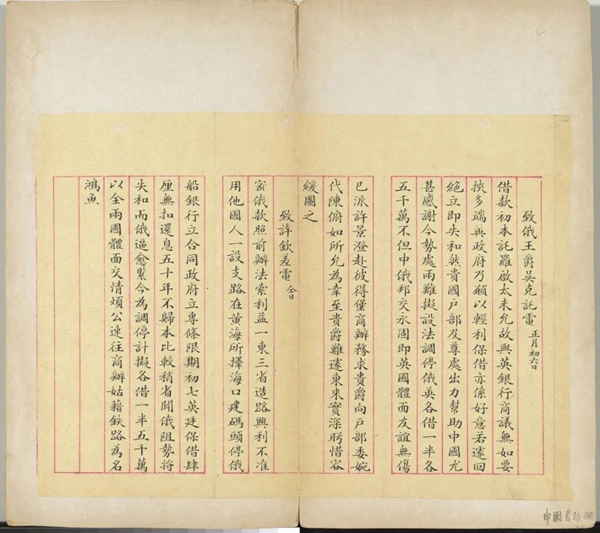 致俄王爵吳克託電 正月初六日
借款初本託羅啟太未允故與英銀行商議無如要
挾多端英政府乃願以輕利保借亦係好意若遽回
絕立即失和然貴國戶部及尊處出力幫助中國尤
甚感謝今勢處兩難擬設法調停俄英各借一半各
五千萬不但中俄邦交永固即英國體面友誼無傷
已派許景澄赴彼得堡商辦務求貴爵向戶部委婉
代陳俯如所允為幸至貴爵難遽東來實深盼惜容
緩圖之
致許欽差電 仝日
密俄款照前辦法索利益一東三省造路興利不准
用他國人一設支路在黃海所擇海口建碼頭停俄
船銀行立合同政府立專條限期初七英廷保借肆
厘無扣還息五十年不歸本比較稍省聞俄阻勢將
失和而俄逼愈緊今為調停計擬各借一半五千萬
以全兩國體面交情煩公速往商辦姑藉鐵路為名
鴻魚